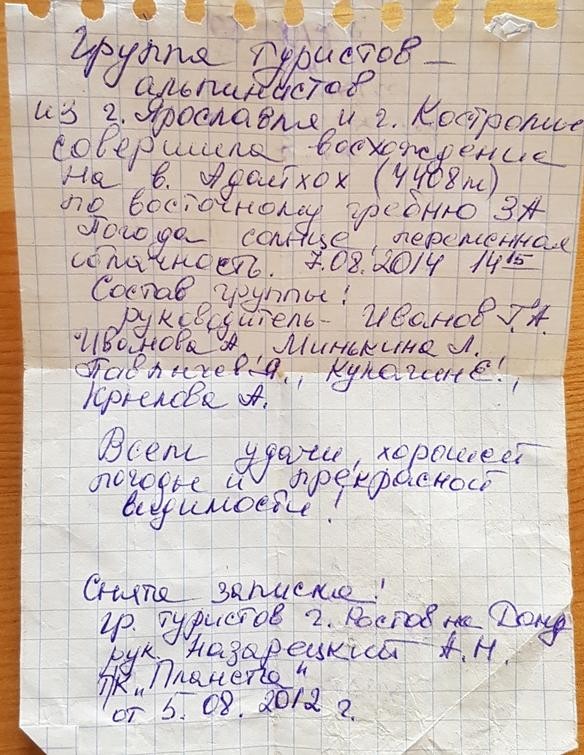 Группа туристов –
альпинистов
из г. Ярославля и г. Костромы
совершила восхождение
на в. Адайхох (4408м)
по восточному гребню 3А
Погода солнце, переменная
облачность. 7.08.2014 14 15
Состав группы:
руководитель- Иванов Г.А.
Иванова А. Минькина Л.
Павлычев А., Кулагин Е.,
Крылова А.
Всем удачи, хорошей
погоды и прекрасной
видимости!
Снята записка:
гр. туристов г. Ростов на Дону
рук. Назарецкий А.Н.
ТК „Планета"
от 5.08.2012 г.